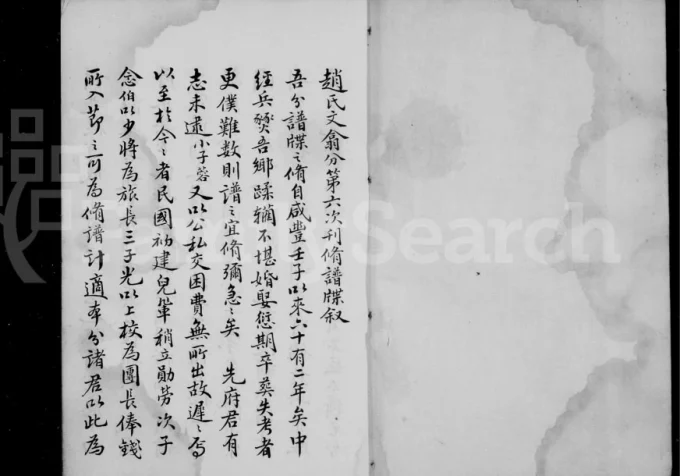 趙氏文翕分第六次刊脩譜牒叙
吾分譜牒之脩自咸豐壬子以來六十有二年矣中
經兵燹吾鄉蹂躪不堪婚娶愆期卒葬失考者
更僕難數則譜之宜脩彌急急矣 先府君有
志未逮小子蓉又以公私交困費無所出故遲遲焉
以至於今今者民國初建兒輩稍立勛勞次子
念伯以少將為旅長三子光以上校為團長俸錢
所入節之可為脩譜計適本分諸君以此為
Search